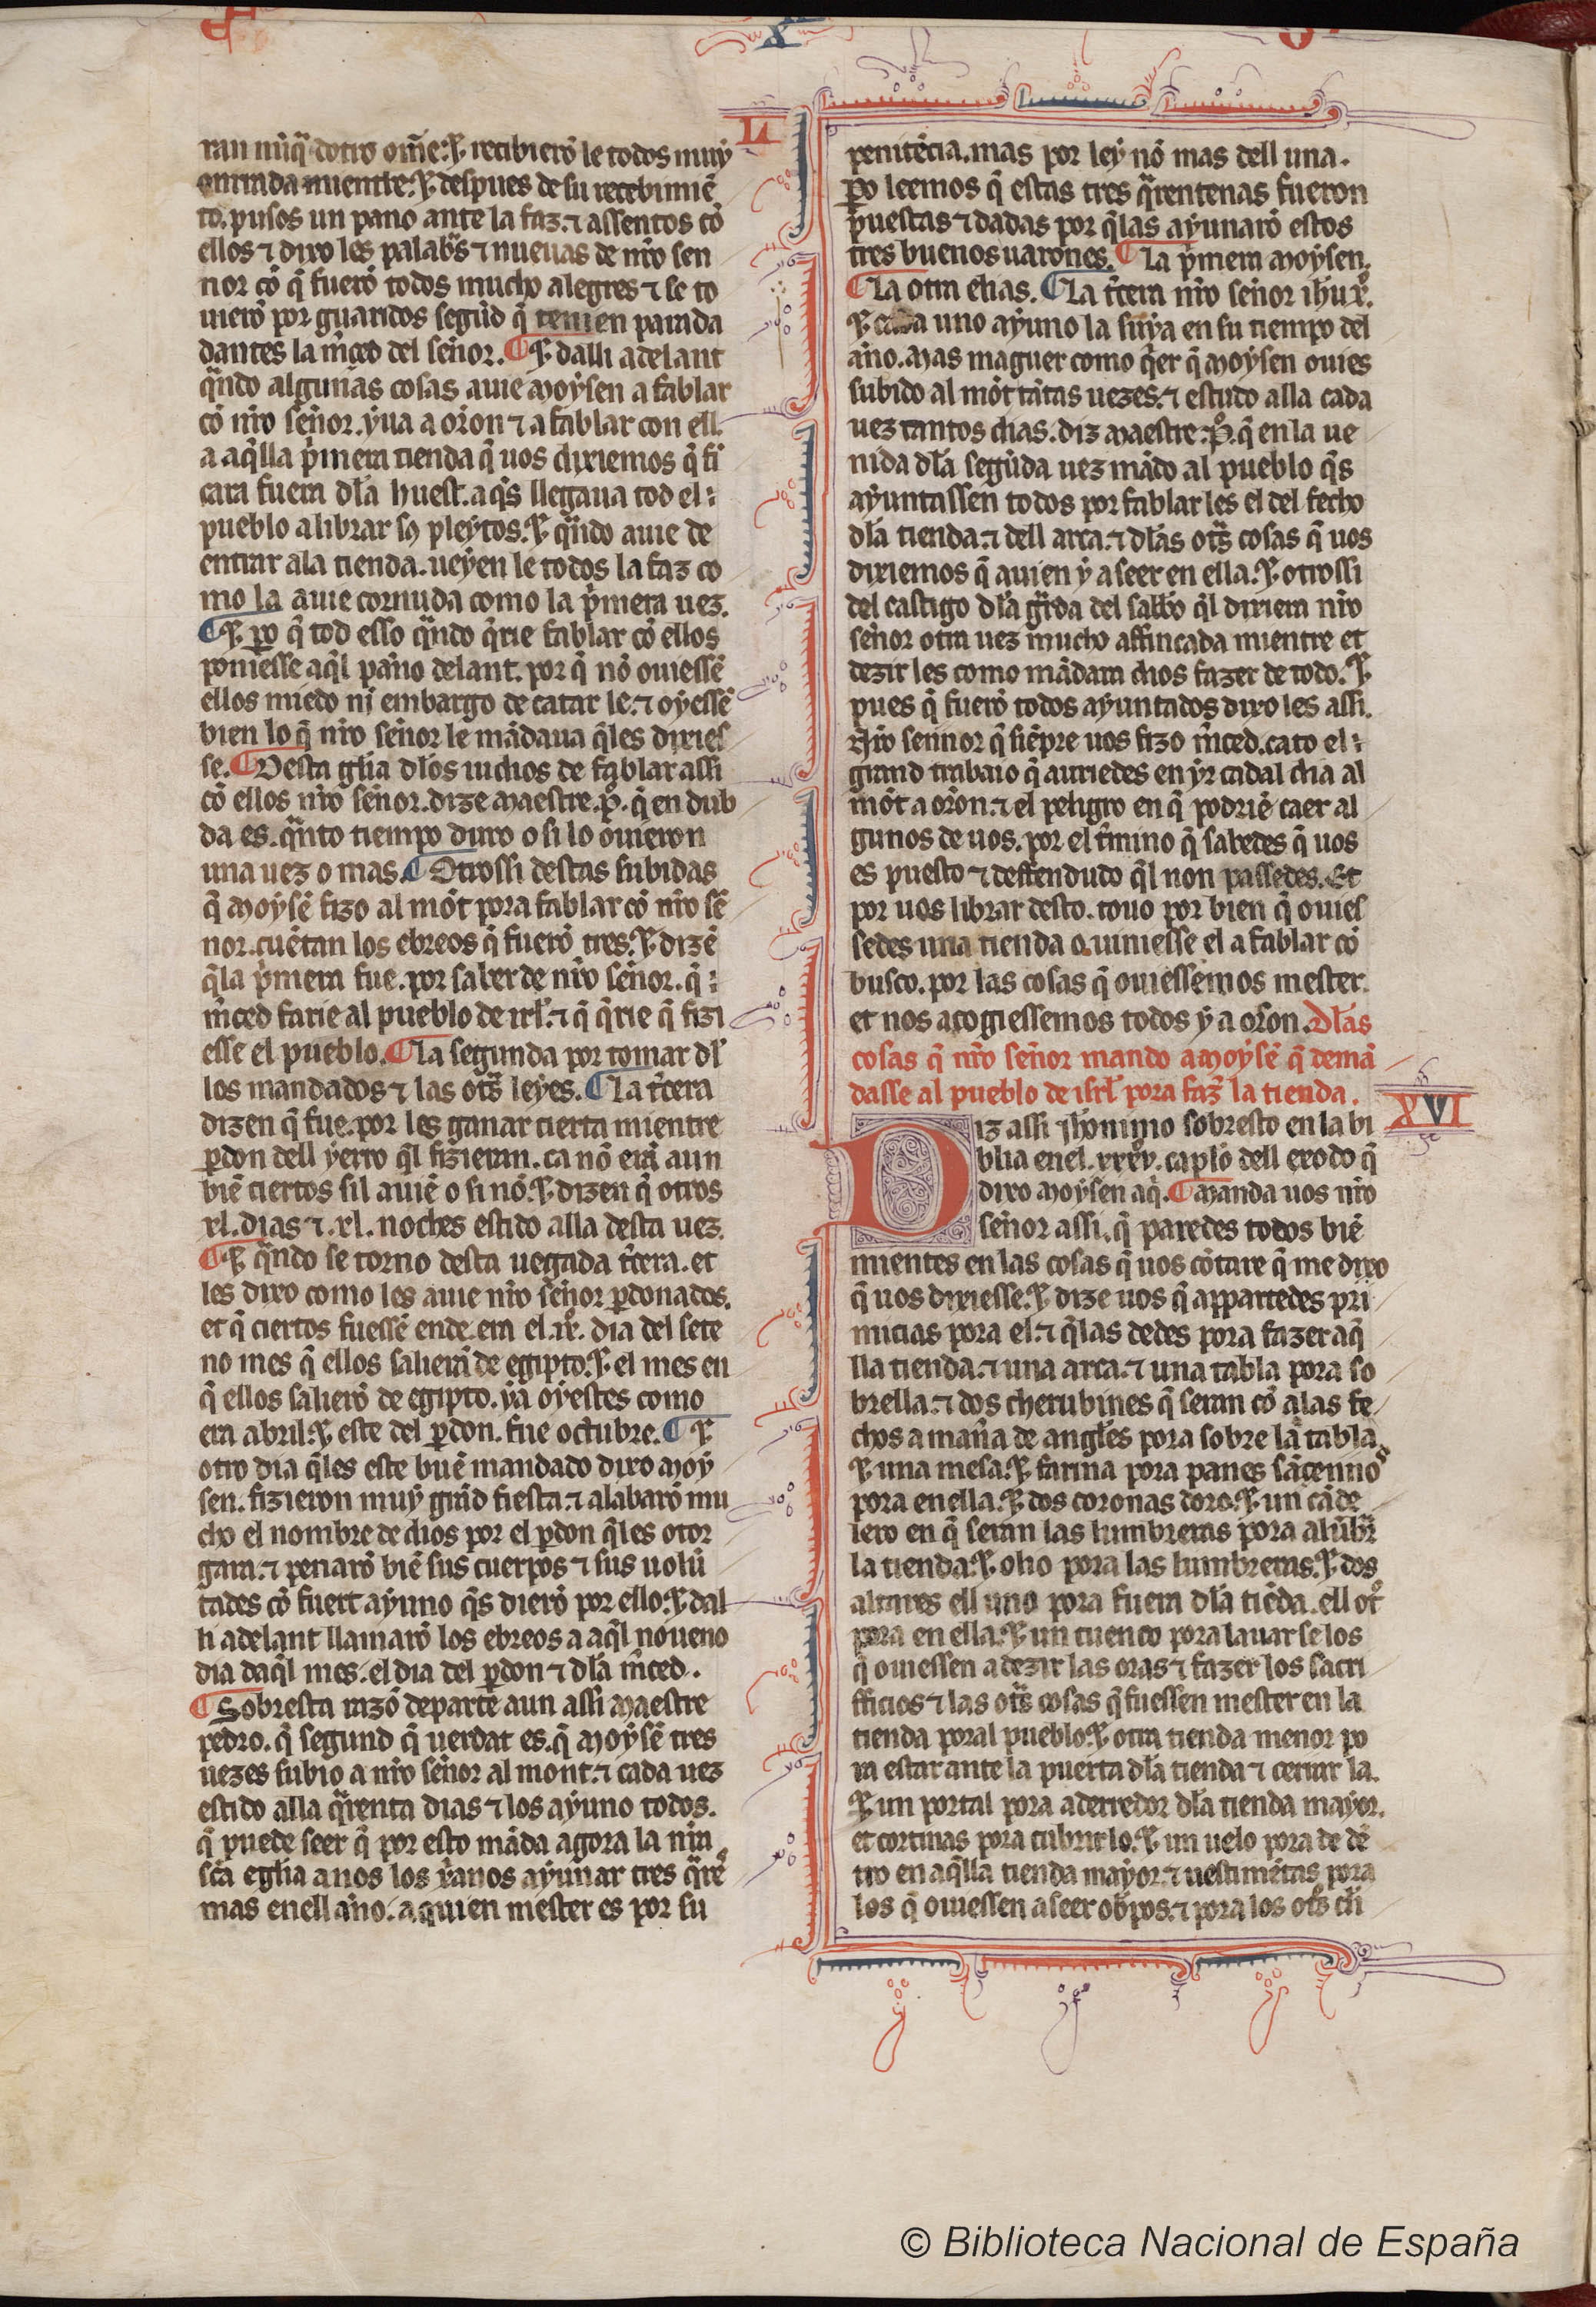 L
ran nũq̃ dotro om̃e. ⁊ recibierõ le todos muy
onrrada mientre. ⁊ despues de su recebimiẽ
to. pusos un pano ante la faz. ⁊ assentos cõ
ellos ⁊ dixo les palabᷓs ⁊ nueuas de nr̃o sen
nor cõ q̃ fuerõ todos mucho alegres ⁊ se to
uierõ por guaridos segũd q̃ tenien parada
dantes la m̃ced del señor. ¶ ⁊ dalli adelant
qᷓndo algunas cosas auie Moysen a fablar
cõ nr̃o señor. yua a orõn ⁊ a fablar con ell.
a aq̃lla p̃mera tienda q̃ uos dixiemos q̃ fi
cara fuera dl̃a huest. a q̃s llegaua tod el
pueblo a librar sꝯ pleytos. ⁊ qᷓndo auie de
entrar ala tienda. ueyen le todos la faz co
mo la auie cornuda como la p̃mera uez.
¶ ⁊ ꝑo q̃ tod esso qᷓndo q̃rie fablar cõ ellos
poniesse aq̃l pano delant. por q̃ nõ ouiessẽ
ellos miedo ni embargo de catar le. ⁊ oyessẽ
bien lo q̃ nr̃o señor le mãdaua q̃les dixies
se. ¶ Desta gl̃ia dl̃os iudios de fablar assi
cõ ellos nr̃o señor. dize Maestre. p̃. q̃ en dub
da es. qᷓnto tiempo duro o si lo ouieron
una uez o mas. ¶ Otrossi destas subidas
q̃ Moysẽ fizo al mõt pora fablar cõ nr̃o sẽ
nor. cuẽtan los ebreos q̃ fuerõ tres. ⁊ dizẽ
q̃la p̃mera fue. por saber de nr̃o señor. q̃
m̃ced farie al pueblo de irl̃. ⁊ q̃ q̃rie q̃ fizi
esse el pueblo. ¶ La segunda por tomar dl̃
los mandados ⁊ las otᷓs leyes. ¶ La t̃cera
dizen q̃ fue. por les ganar cierta mientre
ꝑdon dell yerro q̃l fizieran. ca nõ erã aun
biẽ ciertos sil auiẽ o si nõ. ⁊ dizen q̃ otros
xl. dias ⁊. xl. noches estido alla desta uez.
¶ ⁊ qᷓndo se torno desta uegada t̃cera. et
les dixo como les auie nr̃o señor ꝑdonados.
et q̃ ciertos fuessẽ ende. era el. ix. dia del sete
no mes q̃ ellos salierã de egipto. ⁊ el mes en
q̃ ellos salierõ de egipto. ya oyestes como
era abril. ⁊ este del ꝑdon. fue octubre. ¶ ⁊
otro dia q̃les este buẽ mandado dixo Moy
sen. fizieron muy grãd fiesta. ⁊ alabarõ mu
cho el nombre de dios por el ꝑdon q̃les otor
gara. ⁊ penarõ biẽ sus cuerpos ⁊ sus uolũ
tades cõ fuert ayuno q̃s dierõ por ello. ⁊ dal
li adelant llamarõ los ebreos a aq̃l noueno
dia daq̃l mes. el dia del ꝑdon ⁊ dl̃a m̃ced.
¶ Sobresta razõ departe aun assi Maestre
pedro. q̃ segund q̃ uerdat es. q̃ Moysẽ tres
uezes subio a nr̃o señor al mont. ⁊ cada uez
estido alla qᷓrenta dias ⁊ los ayuno todos.
q̃ puede seer q̃ por esto mãda agora la nr̃a
sc̃a eglia a nos los xᷓanos ayunar tres qᷓrẽ
mas enell año. a quien mester es por su
penitẽcia. mas por ley nõ mas dell una.
ꝑo leemos q̃ estas tres qᷓrentenas fueron
puestas ⁊ dadas por q̃las ayunarõ estos
tres buenos uarones. ¶ La p̃mera Moysen.
¶ La otra elias. ¶ La t̃cera nr̃o señor ih̃u xᷓ.
⁊ cada uno ayuno la suya en su tiempo del
año. Mas maguer como q̃er q̃ Moysen ouies
subido al mõt tãtas uezes. ⁊ estudo alla cada
uez tantos dias. diz Maestre. P̃. q̃ en la ue
nida dl̃a segũda uez mãdo al pueblo q̃s
ayuntassen todos por fablar les el del fecho
dl̃a tienda. ⁊ dell arca. ⁊ dl̃as otᷓs cosas q̃ uos
dixiemos q̃ auien y a seer en ella. ⁊ otrossi
del castigo dl̃a gᷓrda del sabbᷓo q̃l dixiera nr̃o
señor otra uez mucho affincada mientre et
dezir les como mãdara dios fazer de todo. ⁊
pues q̃ fuerõ todos ayuntados dixo les assi.
Nr̃o sennor q̃ siẽpre uos fizo m̃ced. cato el
grand trabaio q̃ auriedes en yr cadal dia al
mõt a orõn. ⁊ el peligro en q̃ podriẽ caer al
gunos de uos. por el t̃mino q̃ sabedes q̃ uos
es puesto ⁊ deffendudo q̃l non passedes. Et
por uos librar desto. touo por bien q̃ ouies
sedes una tienda o uiniesse el a fablar cõ
busco. por las cosas q̃ ouiessemos mester.
et nos acogiessemos todos y a orõn. Dl̃as
cosas q̃ nr̃o señor mando a Moysẽ q̃ demã
dasse al pueblo de isrl̃ pora faz̃ la tienda.
XVI
Diz assi Ih̃onimo sobresto en la bi
blia enel. xxxv. caplõ dell exodo q̃
dixo Moysen aq̃. ¶ Manda uos nr̃o
señor assi. q̃ paredes todos biẽ
mientes en las cosas q̃ uos cõtare q̃ me dixo
q̃ uos dixiesse. ⁊ dize uos q̃ appartedes pri
micias pora el. ⁊ q̃las dedes pora fazer aq̃
lla tienda. ⁊ una arca. ⁊ una tabla pora so
brella. ⁊ dos cherubines q̃ seran cõ alas fe
chos a mañ̃a de angl̃es pora sobre la tabla.
⁊ una mesa. ⁊ farina pora panes sãcennos
pora en ella. ⁊ dos coronas doro. ⁊ un cãde
lero en q̃ seran las lumbreras pora alũbrᷓ
la tienda. ⁊ olio pora las lumbreras. ⁊ dos
altares ell uno pora fuera dl̃a tiẽda. ell otᷓ
pora en ella. ⁊ un cuenco pora lauar se los
q̃ ouiessen a dezir las oras ⁊ fazer los sacri
fficios ⁊ las otᷓs cosas q̃ fuessen mester en la
tienda poral pueblo. ⁊ otra tienda menor po
ra estar ante la puerta dl̃a tienda ⁊ cerrar la.
⁊ un portal pora aderredor dl̃a tienda mayor.
et cortinas pora cubrir lo. ⁊ un uelo pora de dẽ
tro en aq̃lla tienda mayor. ⁊ uestimẽtas pora
los q̃ ouiessen a seer obpos. ⁊ pora los otᷓs cl̃i
© Biblioteca Nacional de España